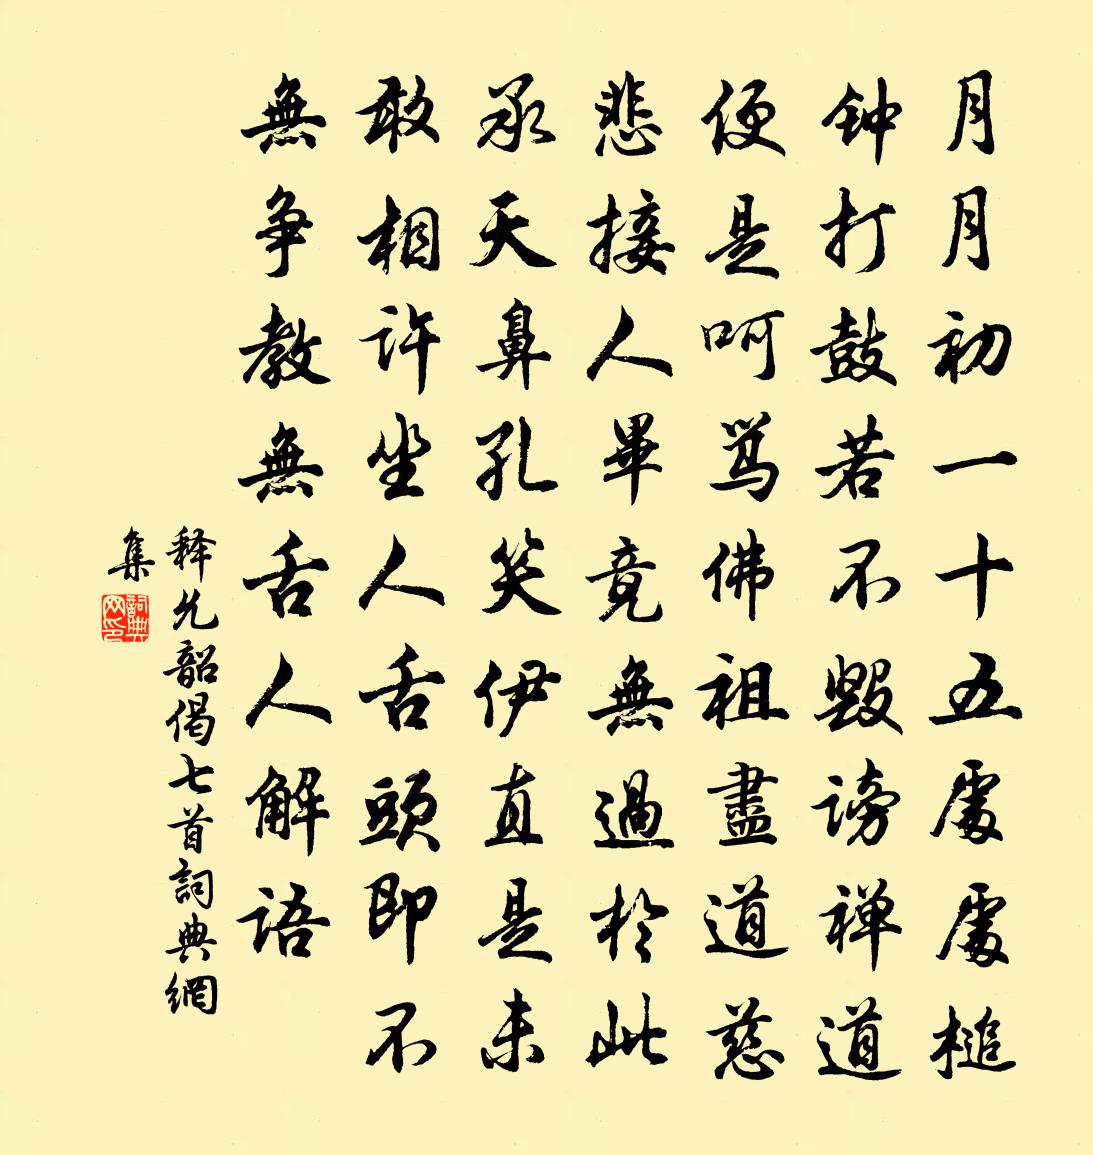 月月初一十五處處槌
钟打鼓若不毁謗禅道
便是呵骂佛祖盡道慈
悲接人畢竟無過於此
承天鼻孔笑伊直是未
敢相许坐人舌頭即不
無争教無舌人解语
释允韶偈七首詞典網
集
詞典
网印